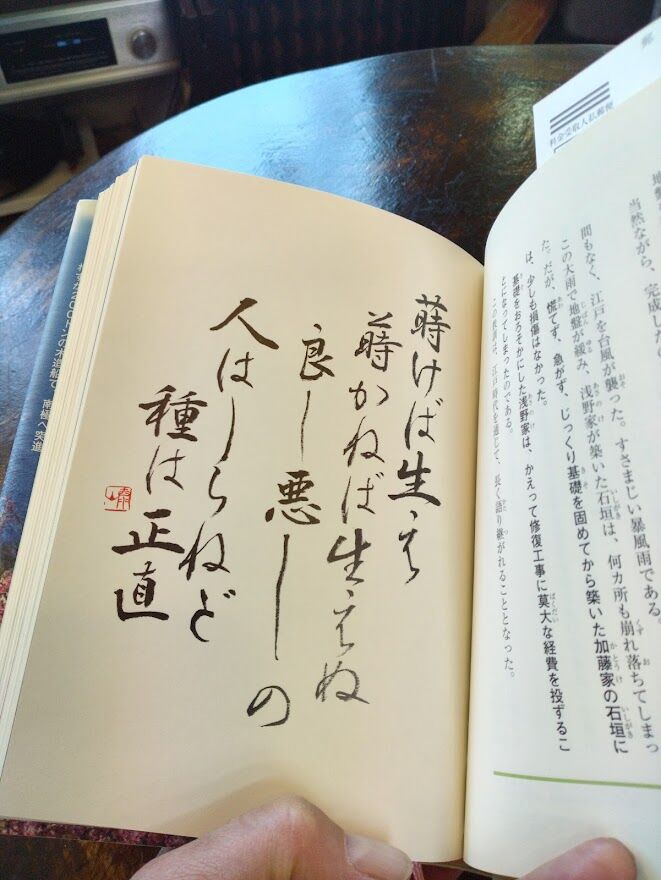 料金受取人払郵便
当然ながら、完成した
間もなく、江戸を台風が襲った。すさまじい暴風雨である。
この大雨で地盤が緩み、浅野家が築いた石垣は、何カ所も崩れ落ちてしまっ
た。だが、慌てず、急がず、じっくり基礎を固めてから築いた加藤家の石垣に
は、少しも損傷はなかった。
基礎をおろそかにした浅野家は、かえって修復工事に莫大な経費を投ずるこ
とになってしまったのである。
この教訓は、江戸時代を通じて、長く語り継がれることとなった。
蒔けば生え
蒔かねば生えぬ
良し悪しの
人はしらねど
種は正直
わずか200トンの木造船で 南極へ突進